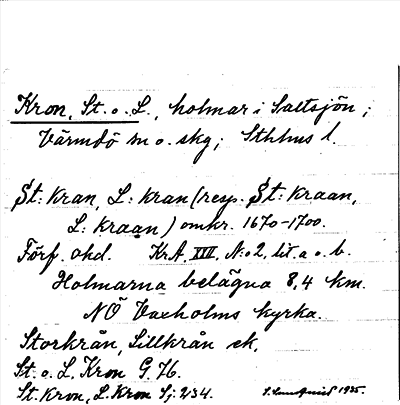 Kron, St. o. L., holmar i Saltsjön;
Värmdö sn o. skg; Sthlms l.
St: kran, L: kran (resp. St: kraan,
L: kraan) omkr. 1670-1700.
Förf. okd. KrA. XIII, N:o 2, lit. a o. b.
Holmarna belägna 8,4 km.
NÖ Vaxholms kyrka.
Storkrån, Lillkrån ek.
St. o. L. Kron G. 76.
St. Kron, L. Kron Sj: 234.
1935.